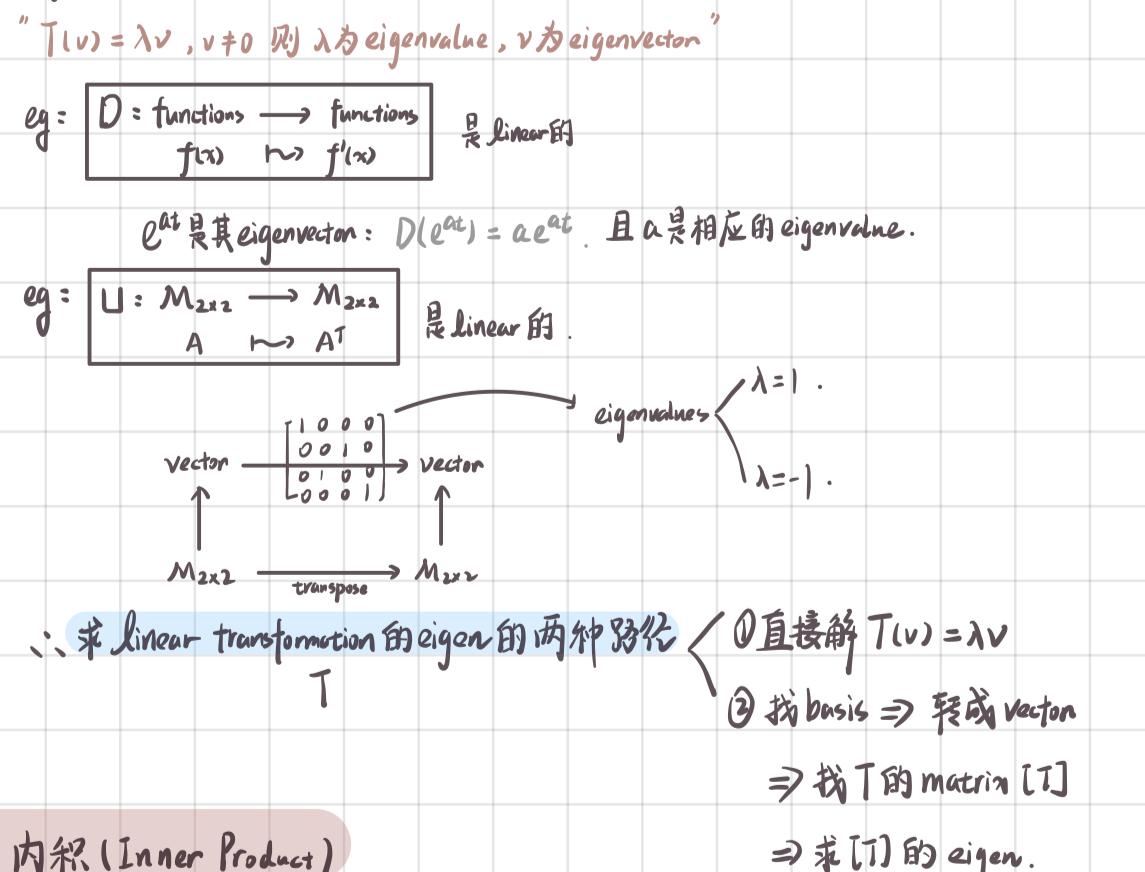 "T(v) = λv , v ≠ 0 则 λ为eigenvalue , v 为eigenvector"
eg: D : functions → functions
f(x) ↦ f'(x)
是linear的
e^{at}是其eigenvector: D(e^{at}) = ae^{at} . 且a是相应的eigenvalue.
eg: U : M_{2×2} → M_{2×2}
A ↦ A^T
是linear的.
vector
1 0 0 0
0 0 1 0
0 1 0 0
0 0 0 1
vector
eigenvalues
λ=1 .
λ=-1 .
M_{2×2} → M_{2×2}
transpose
∴ 求linear transformation的eigen的两种路径
T
① 直接解 T(v) = λv
② 找basis ⇒ 转成vector
⇒ 找T的matrix [T]
⇒ 求[T]的eigen.
内积(Inner Product)